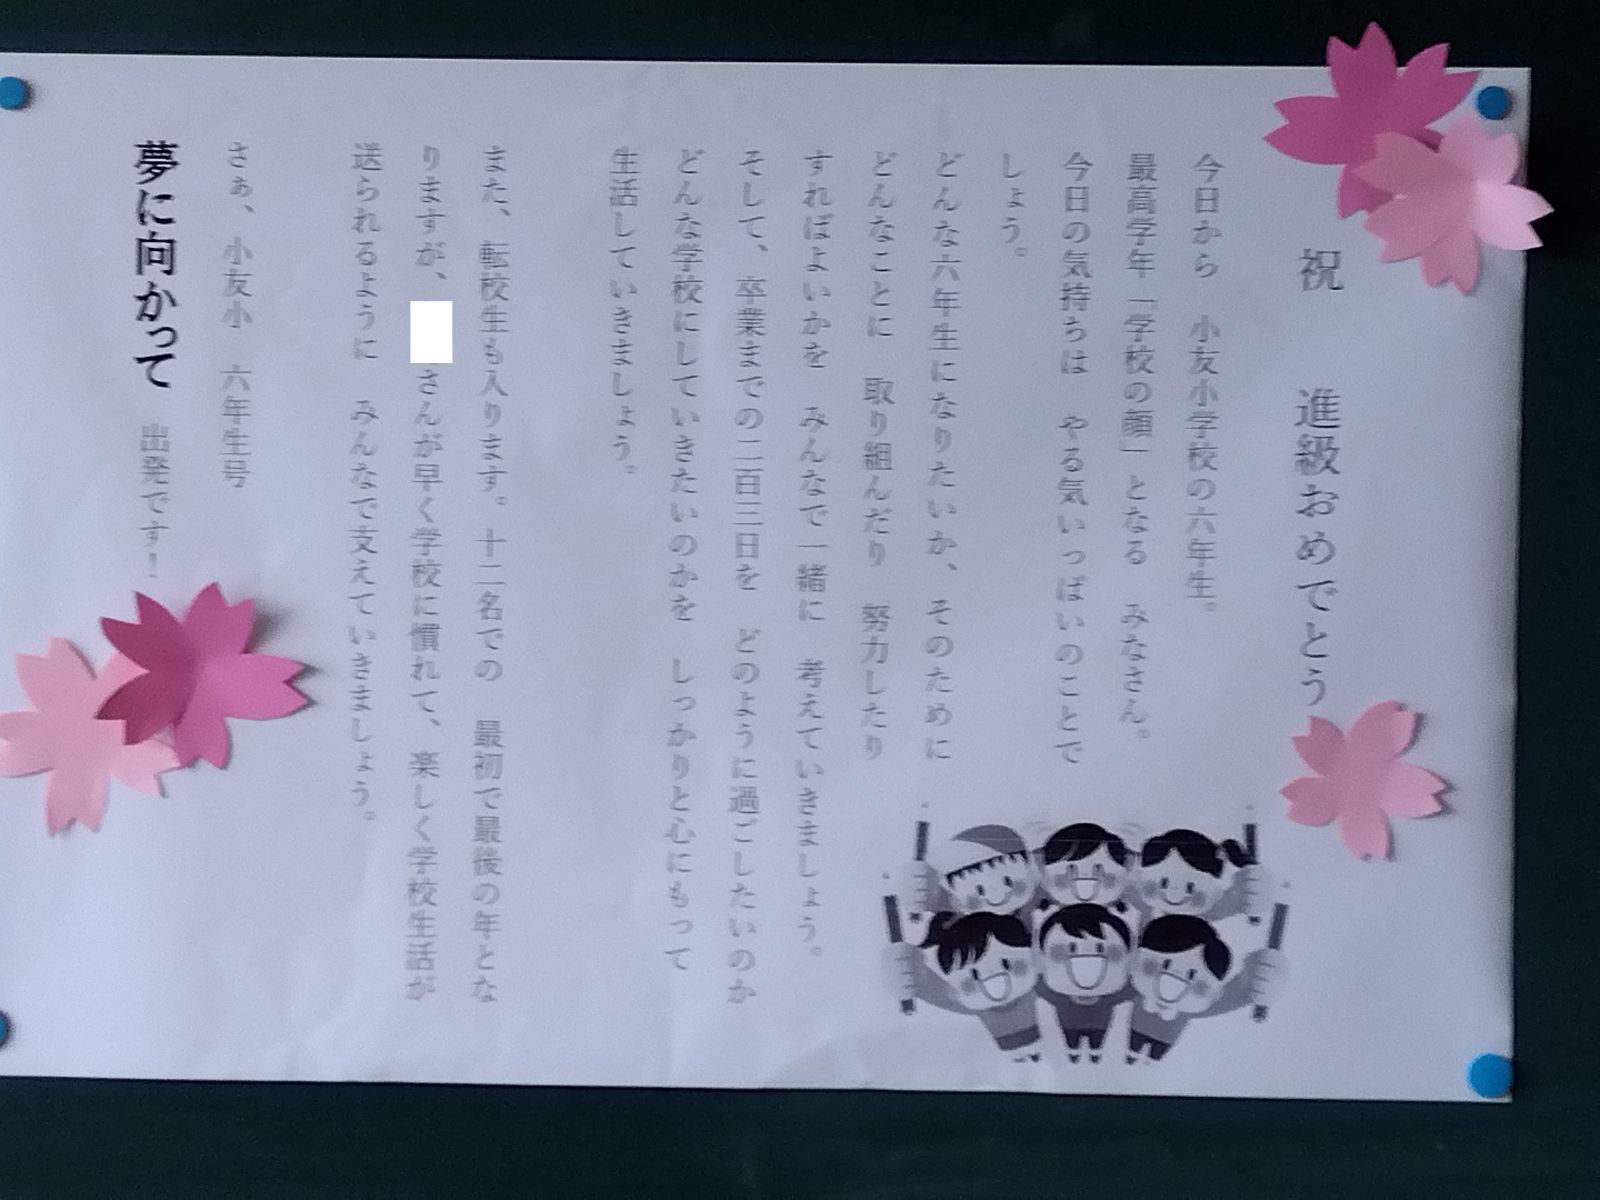 祝　進級おめでとう
今日から　小友小学校の六年生。
最高学年「学校の顔」となる　みなさん。
今日の気持ちは　やる気いっぱいのことで
しょう。
どんな六年生になりたいか、そのために
どんなことに　取り組んだり　努力したり
すればよいかを　みんなで一緒に　考えていきましょう。
そして、卒業までの二百三日を　どのように過ごしたいのか
どんな学校にしていきたいのかを　しっかりと心にもって
生活していきましょう。
また、転校生も入ります。十二名での　最初で最後の年とな
りますが、さんが早く学校に慣れて、楽しく学校生活が
送られるように　みんなで支えていきましょう。
さぁ、小友小　六年生号
夢に向かって　出発です！